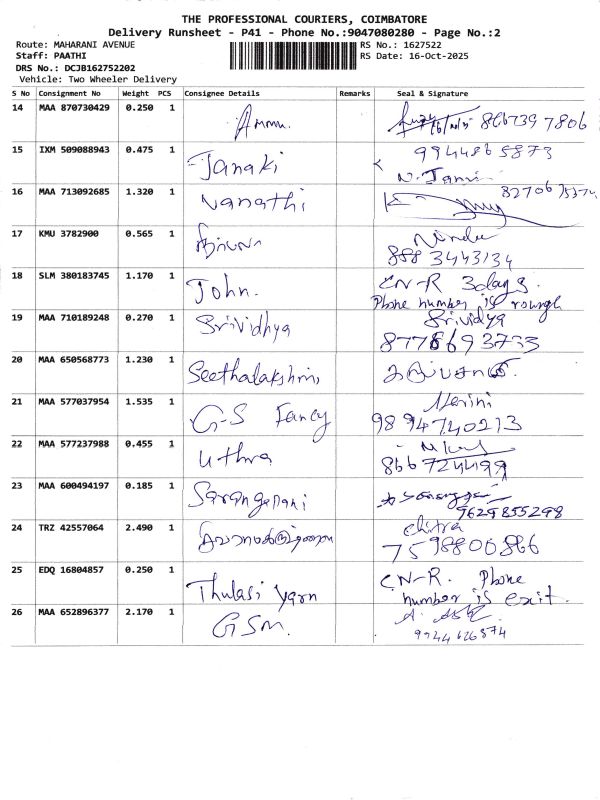 THE PROFESSIONAL COURIERS, COIMBATORE
Delivery Runsheet - P41 - Phone No.:9047080280 - Page No.:2
Route: MAHARANI AVENUE RS No.: 1627522
Staff: PAATHI RS Date: 16-Oct-2025
DRS No.: DCJB162752202
Vehicle: Two Wheeler Delivery
S No Consignment No Weight PCS Consignee Details Remarks Seal & Signature
14 MAA 870730429 0.250 1 Ammu. 8667397806
15 IXM 509088943 0.475 1 Janaki 9944865873
16 MAA 713092685 1.320 1 Vanathi
17 KMU 3782900 0.565 1 Nindu
8883443134
18 SLM 380183745 1.170 1 John. CN-R 3days
Phone number is rough
19 MAA 710189248 0.270 1 Srividhya Srividya
8778693733
20 MAA 650568773 1.230 1 Seethalakshmi
21 MAA 577037954 1.535 1 G-S Fancy
9894740213
22 MAA 577237988 0.455 1 Uthra
8667724499
23 MAA 600494197 0.185 1 Sarangapani
9629855298
24 TRZ 42557064 2.490 1 chitra
7598800866
25 EDQ 16804857 0.250 1 Thulasi yarn CN-R. Phone
number is exit.
26 MAA 652896377 2.170 1 GSM.
9944626874